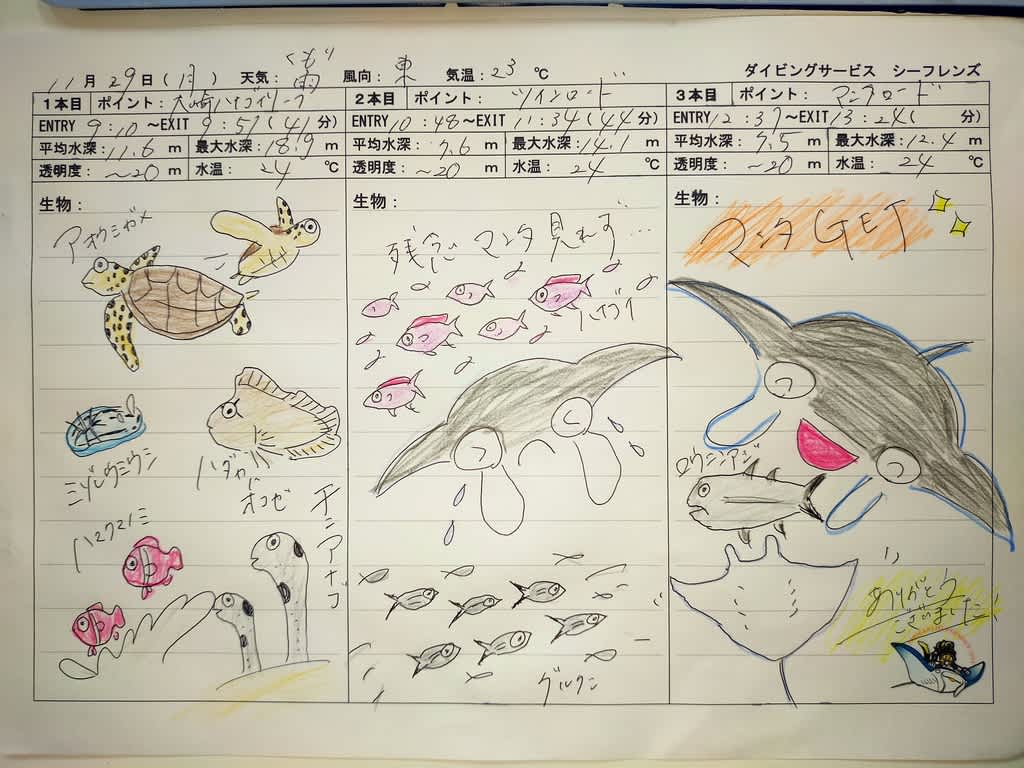 11月29日(月) 天気:くもり 雨 風向:東 気温:23℃
ダイビングサービス シーフレンズ
1本目 ポイント:大崎ハナゴイリーフ
ENTRY 9:10 ~EXIT 9:51(41分)
平均水深:11.6m 最大水深:18.9m
透明度:~20m 水温:24℃
生物:
アオウミガメ
ミゾレウミウシ
ハダカハオコゼ
ハマクマノミ
チンアナゴ
2本目 ポイント:ツインロード
ENTRY 10:48 ~EXIT 11:34(44分)
平均水深:7.6m 最大水深:14.1m
透明度:~20m 水温:24℃
生物:
残念 マンタ 見れず…
ハナゴイ
グルクン
3本目 ポイント:マンタロード
ENTRY 12:37 ~EXIT 13:24(分)
平均水深:7.5m 最大水深:12.4m
透明度:~20m 水温:24℃
生物:
マンタGET
ロウニンアジ
ありがとう
ございました